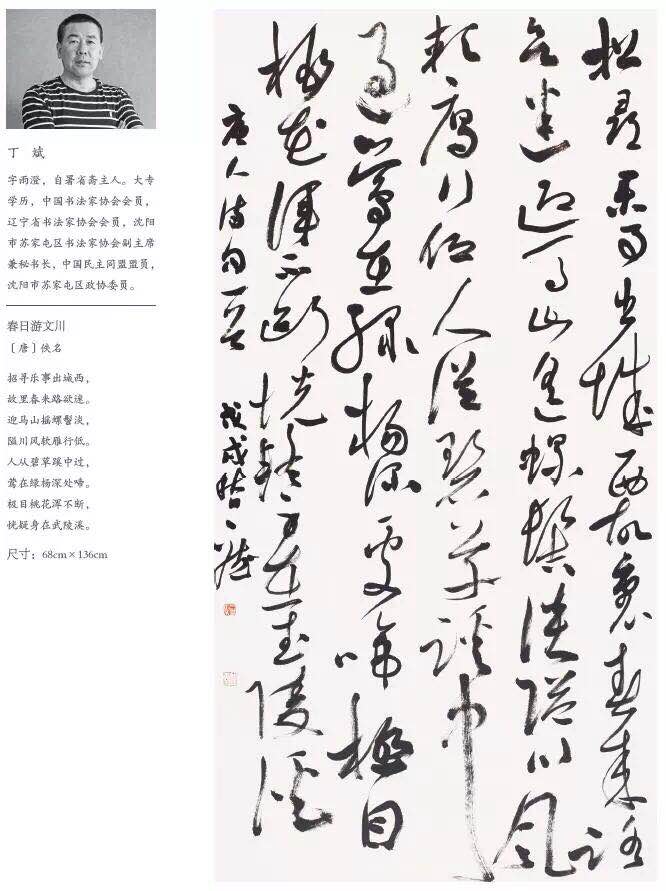 丁 斌
字雨澄，自署省斋主人。大专
学历，中国书法家协会会员，
辽宁省书法家协会会员，沈阳
市苏家屯区书法家协会副主席
兼秘书长，中国民主同盟盟员，
沈阳市苏家屯区政协委员。
春日游文川
〔唐〕佚名
招寻乐事出城西，
故里春来路欲迷。
迎马山摇螺髻淡，
隘川风软雁行低。
人从碧草蹊中过，
莺在绿杨深处啼。
极目桃花浑不断，
恍疑身在武陵溪。
尺寸：68cm×136cm
招尋樂事出城西故里春來路
欲迷迎馬山遥螺髻淡隘川風
軟雁行低人從碧草蹊中
過鶯在綠楊深處啼極目
桃花渾不斷恍疑身在武陵溪
唐人詩句一首 戊戌